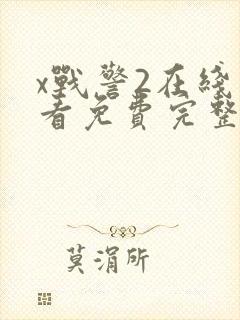 x戰警2在綫
看免費完整
莫涓所